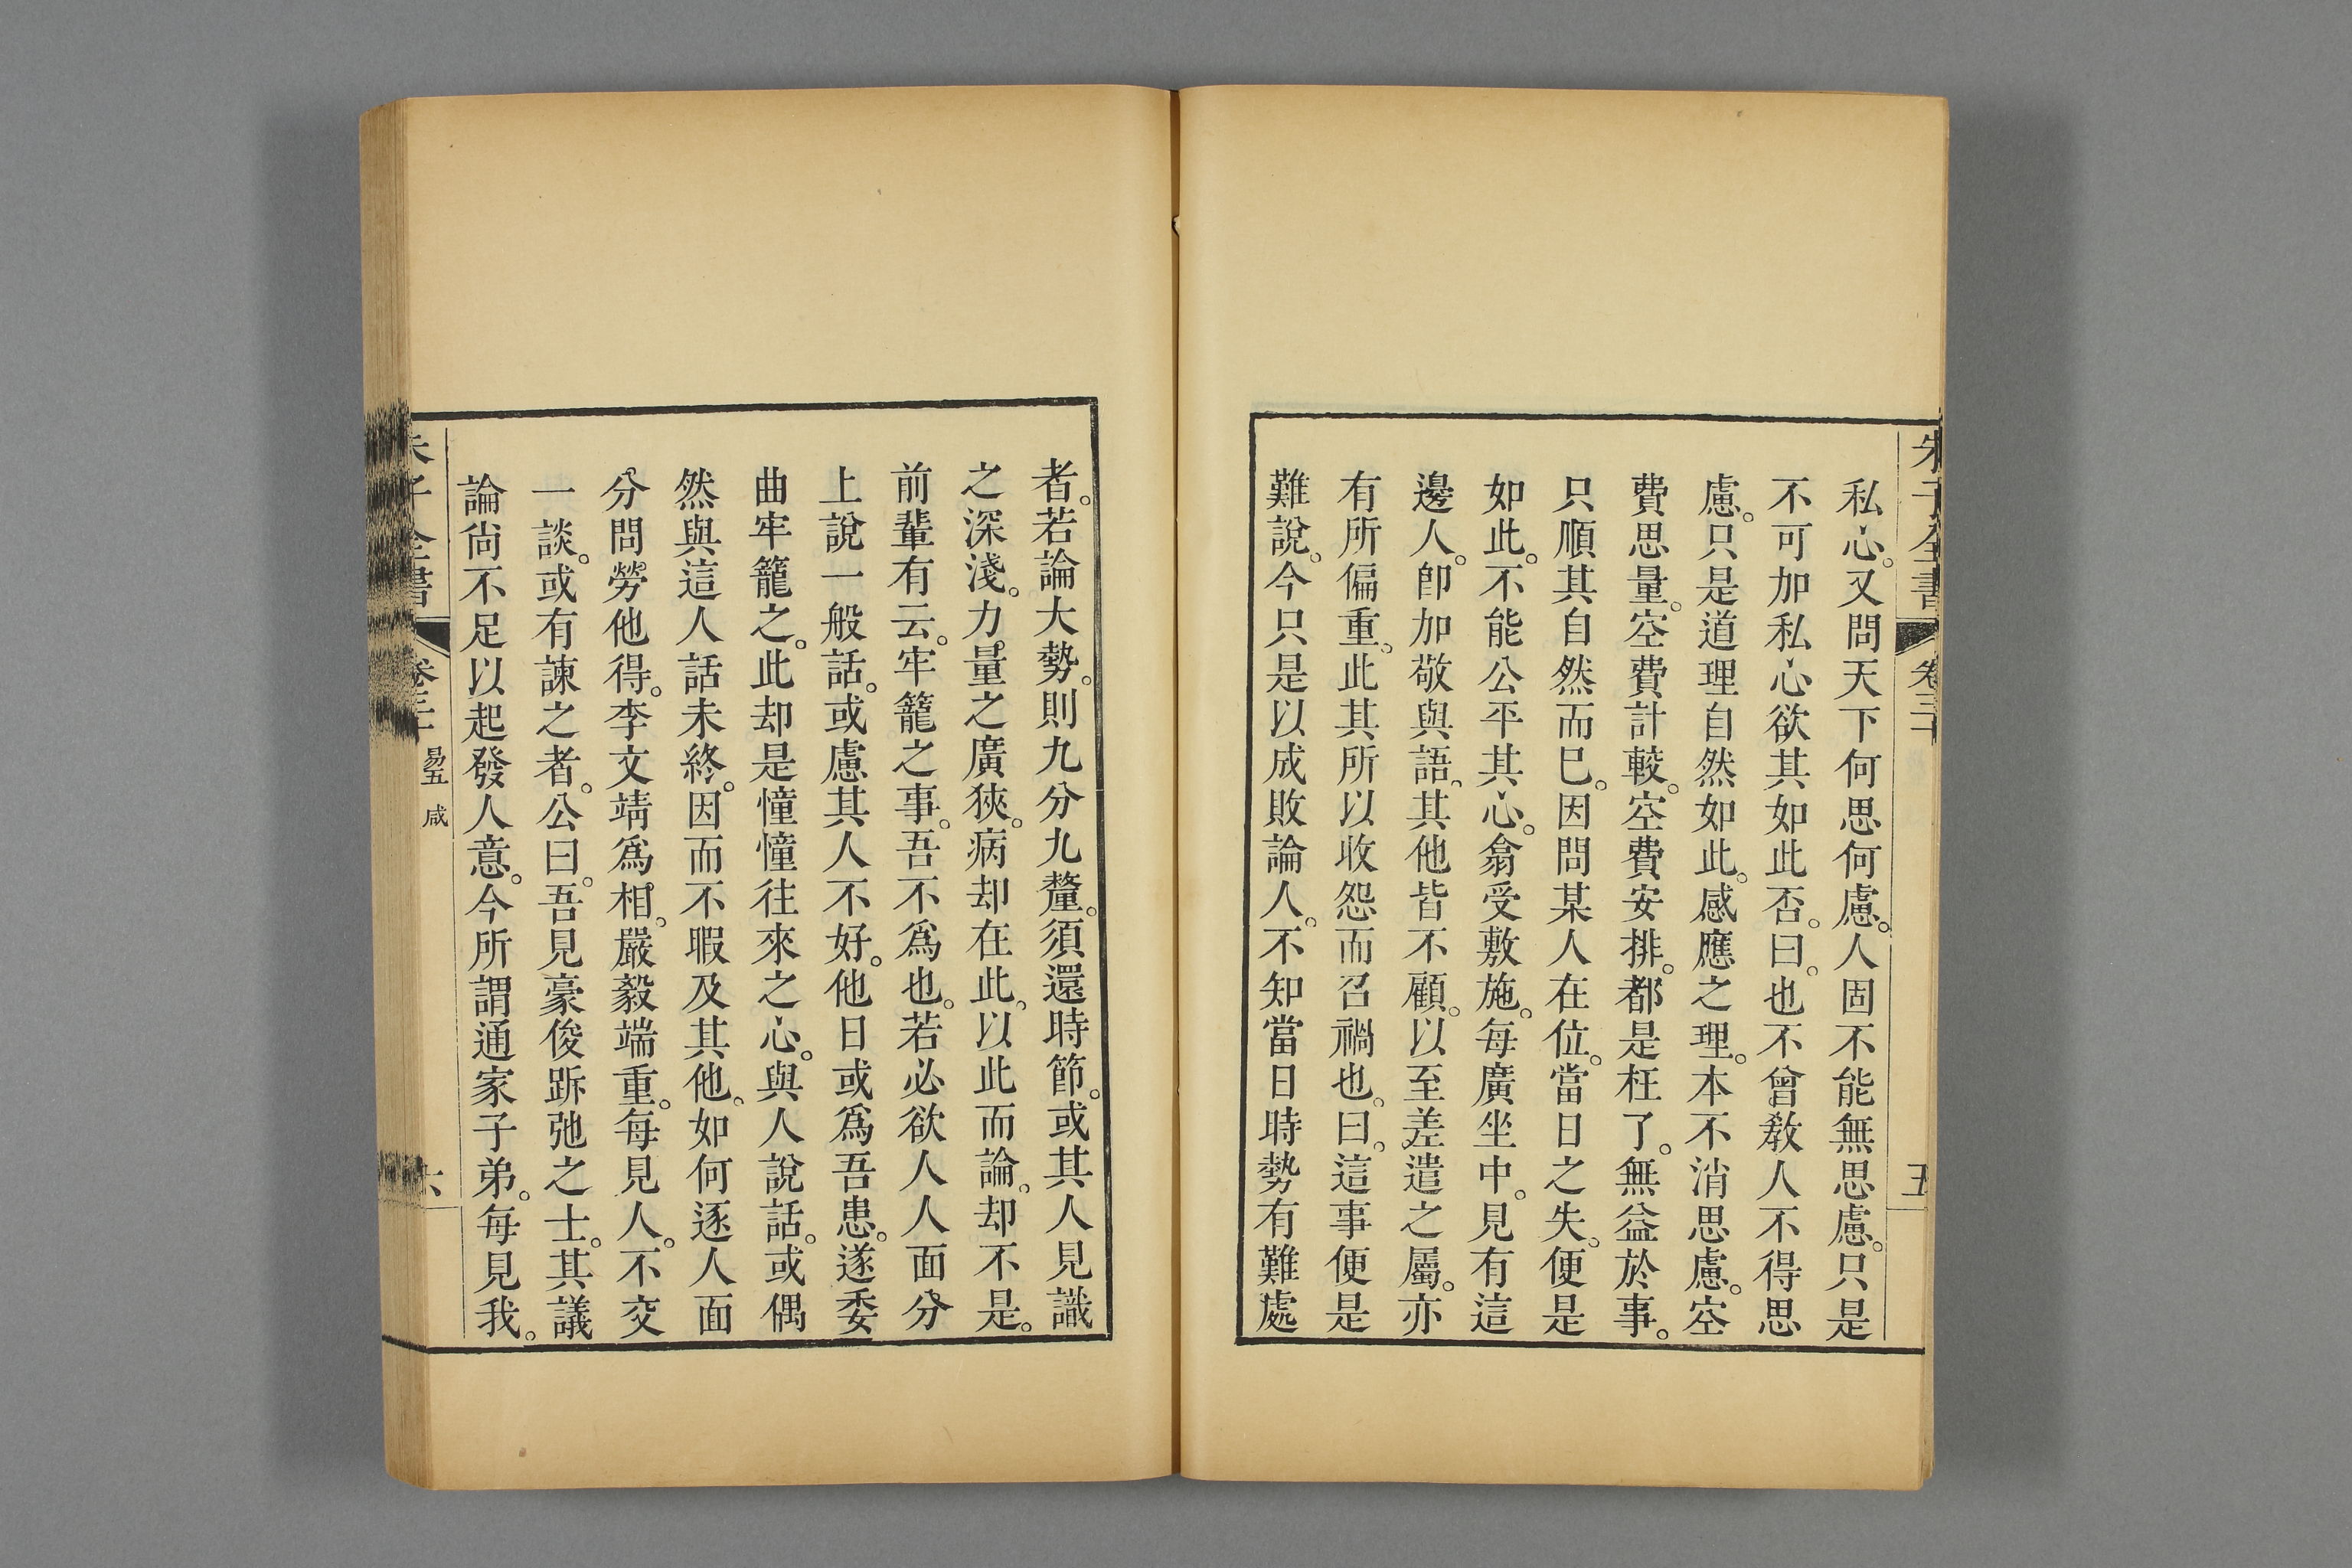 朱子全書 卷三十 五
私心。又問天下何思何慮。人固不能無思慮。只是
不可加私心欲其如此否。曰。也不曾教人不得思
慮。只是道理自然如此。感應之理。本不消思慮。空
費思量。空費計較。空費安排。都是枉了。無益於事。
只順其自然而已。因問某人在位。當日之失。便是
如此。不能公平其心。翕受敷施。每廣坐中。見有這
邊人。卽加敬與語。其他皆不顧。以至差遣之屬。亦
有所偏重。此其所以收怨而召禍也。曰。這事便是
難說。今只是以成敗論人。不知當日時勢有難處
者。若論大勢。則九分九釐。須還時節。或其人見識
之深淺。力量之廣狹。病却在此。以此而論。却不是。
前輩有云。牢籠之事。吾不爲也。若必欲人人面分
上說一般話。或慮其人不好。他日或爲吾患。遂委
曲牢籠之。此却是憧憧往來之心。與人說話。或偶
然與這人話未終。因而不暇及其他。如何逐人面
分問勞他得。李文靖爲相。嚴毅端重。每見人。不交
一談。或有諫之者。公曰。吾見豪俊跅弛之士。其議
論尙不足以起發人意。今所謂通家子弟。每見我。
朱子全書 卷三十 易五 咸 六